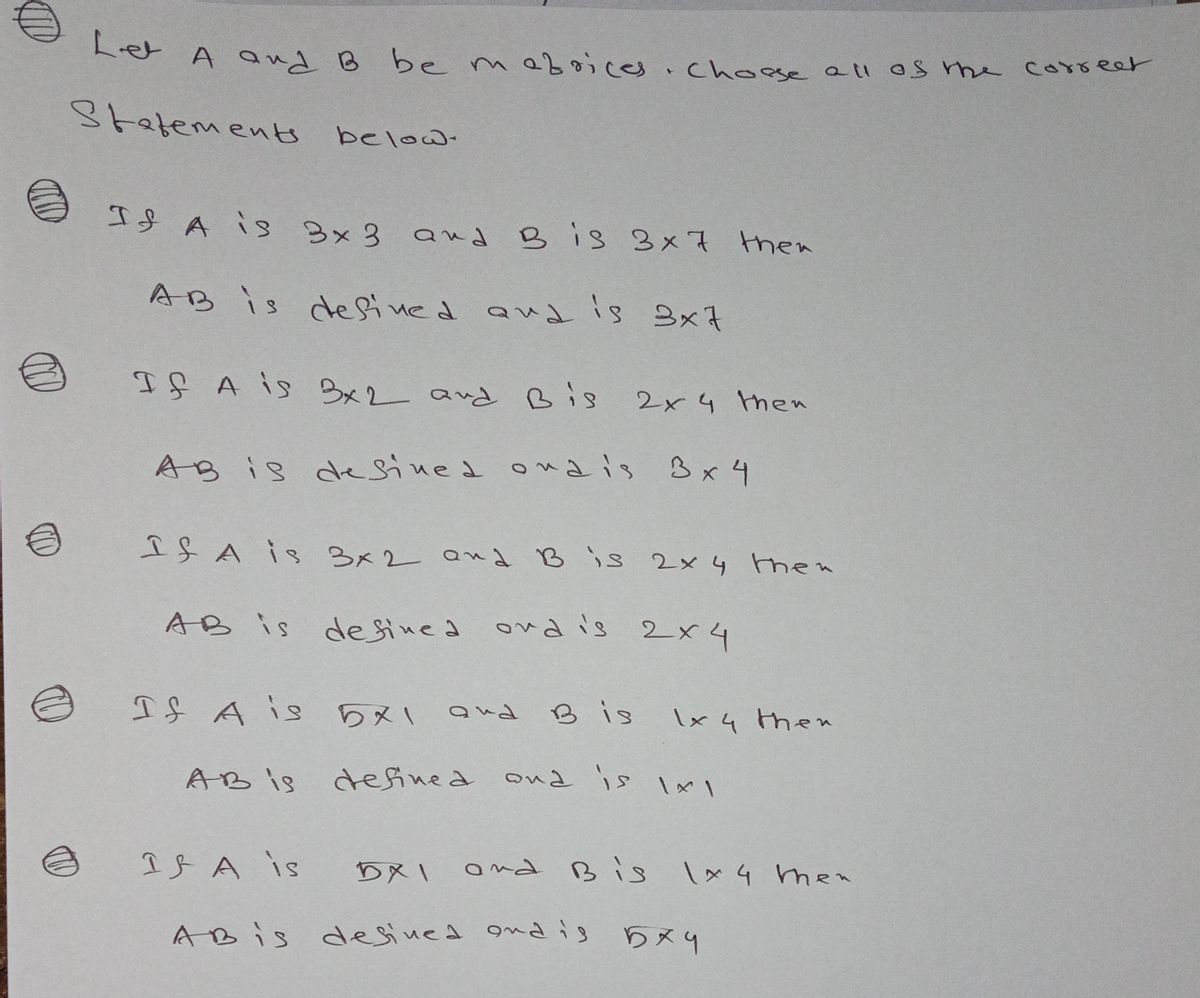 Let A and B be matrices. Choose all of the correct
Statements below.
If A is 3x3 and B is 3x7 then
AB is defined and is 3x7
If A is 3x2 and B is 2x4 then
AB is defined and is 3x4
If A is 3x2 and B is 2x4 then
AB is defined and is 2x4
If A is 5x1 and B is 1x4 then
AB is defined and is 1x1
If A is 5x1 and B is 1x4 then
AB is defined and is 5x4